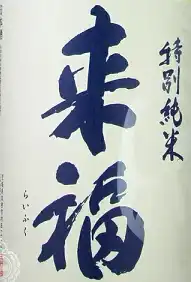 特別純米
来福
らいふく